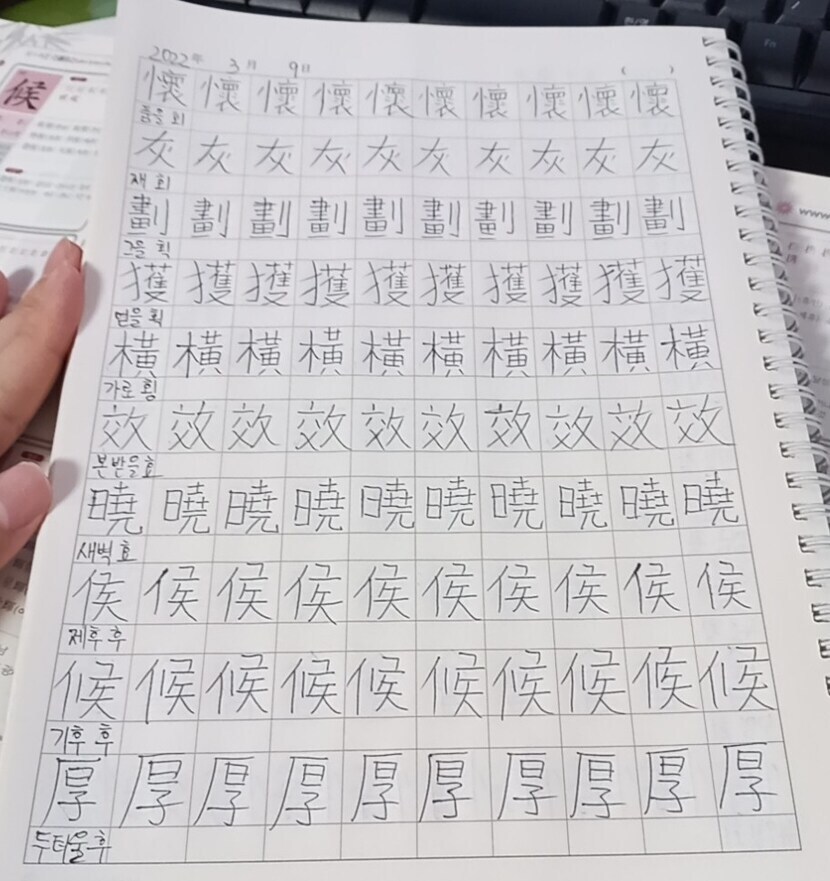 2022年 3月 9日 ( )
懷 懷 懷 懷 懷 懷 懷 懷 懷 懷
품을 회
灰 灰 灰 灰 灰 灰 灰 灰 灰 灰
재 회
劃 劃 劃 劃 劃 劃 劃 劃 劃 劃
그을 획
獲 獲 獲 獲 獲 獲 獲 獲 獲 獲
얻을 획
橫 橫 橫 橫 橫 橫 橫 橫 橫 橫
가로 횡
效 效 效 效 效 效 效 效 效 效
본받을 효
曉 曉 曉 曉 曉 曉 曉 曉 曉 曉
새벽 효
侯 侯 侯 侯 侯 侯 侯 侯 侯 侯
제후 후
候 候 候 候 候 候 候 候 候 候
기후 후
厚 厚 厚 厚 厚 厚 厚 厚 厚 厚
두터울 후
候
www.